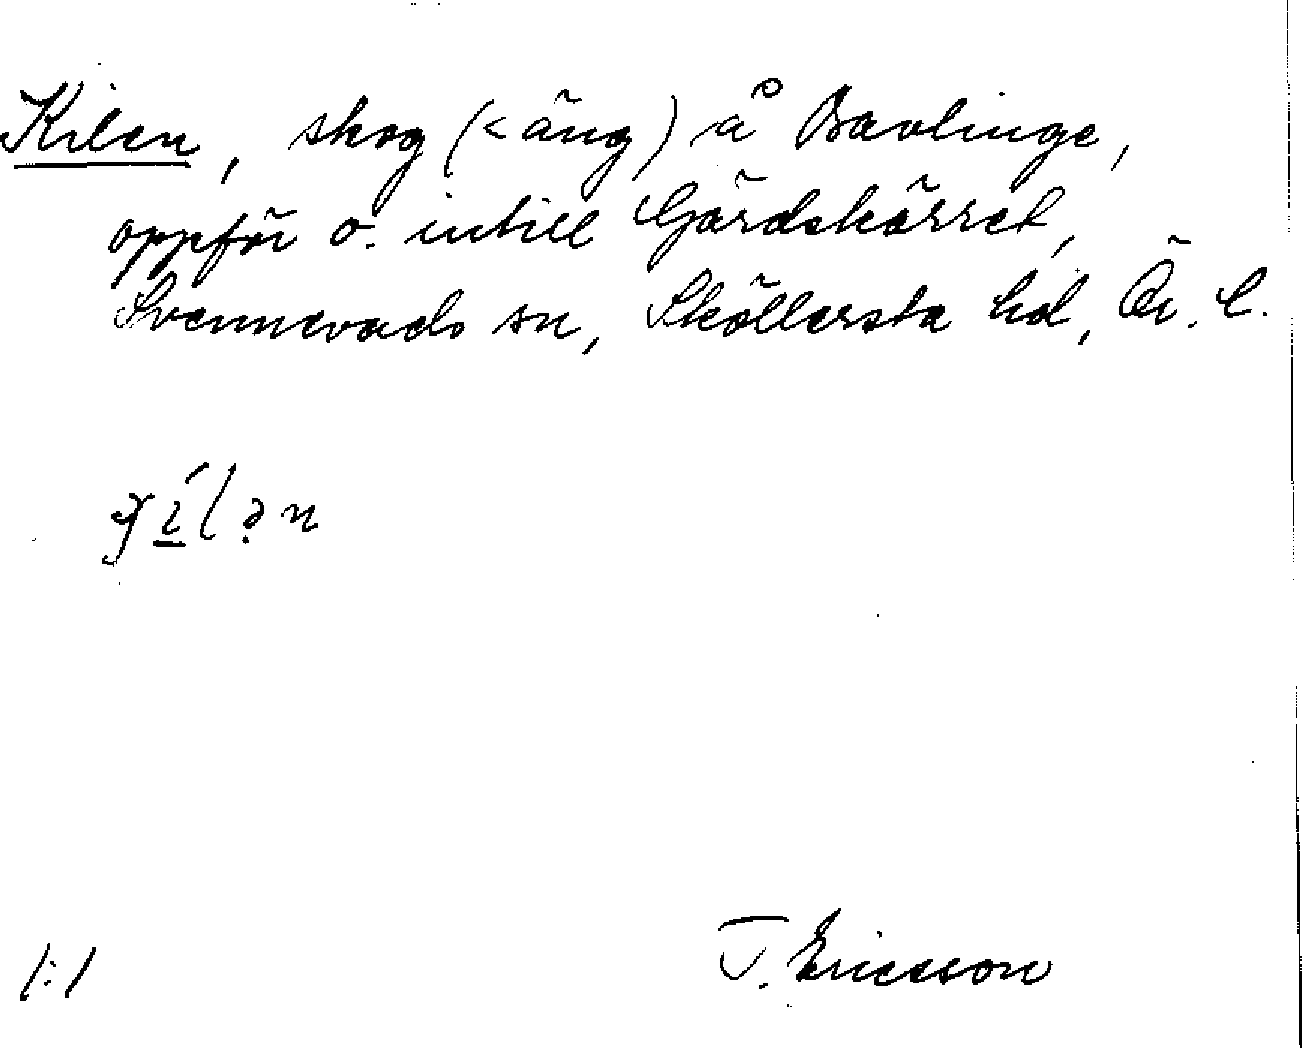 Kilen, skog (< äng) å Bavlinge,
oppför o. intill Gärdskärret,
Svennevads sn, Sköllersta hd, Ör. l.
1:1
T. Ericsson